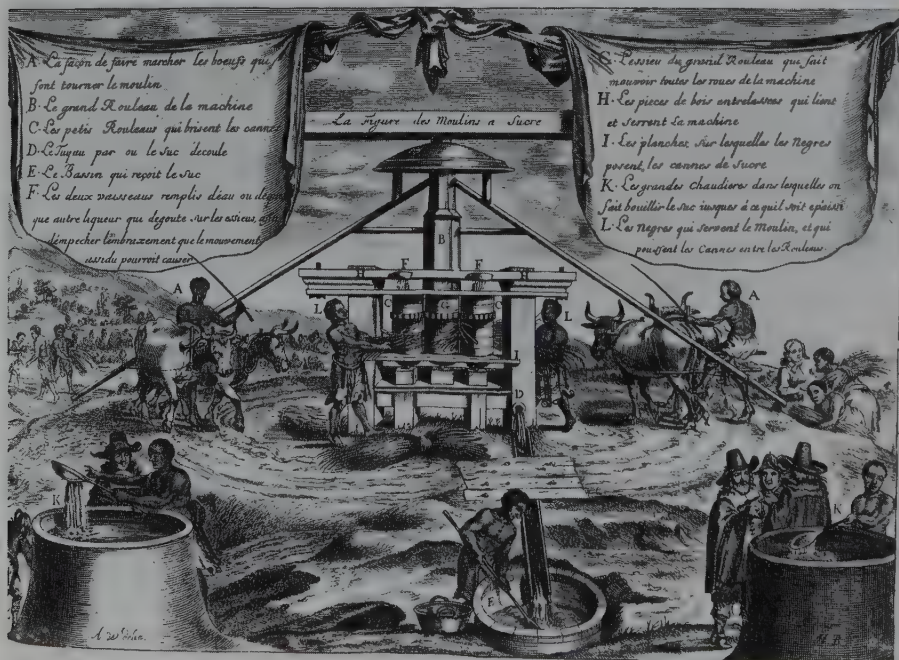 A. La façon de faire marcher les boeufs qui
font tourner le moulin
B. Le grand Rouleau de la machine
C. Les petis Rouleaus qui brisent les cannes
D. Le Tuyau par ou le suc decoule
E. Le Bassin qui reçoit le suc
F. Les deux vaisseaus remplis d'eau ou de
que autre liqueur que degoute sur les essieus,
d'empecher l'embrazement que le mouvement
assidu pourroit causer
La Figure des Moulins a Sucre
G. L'essieu du grand Rouleau que fait
mouvoir toutes les roues de la machine
H. Les pieces de bois entrelassees qui lient
et serrent la machine
I. Les planches sur lesquelles les Negres
posent les cannes de sucre
K. Les grandes chaudieres dans lesquelles on
fait bouillir le suc iusques à ce qu'il soit epaissi
L. Les Negres qui servent le Moulin, et qui
poussent les Cannes entre les Rouleaus
B
H F F H
A A
L C G C L
I
D
K K
E